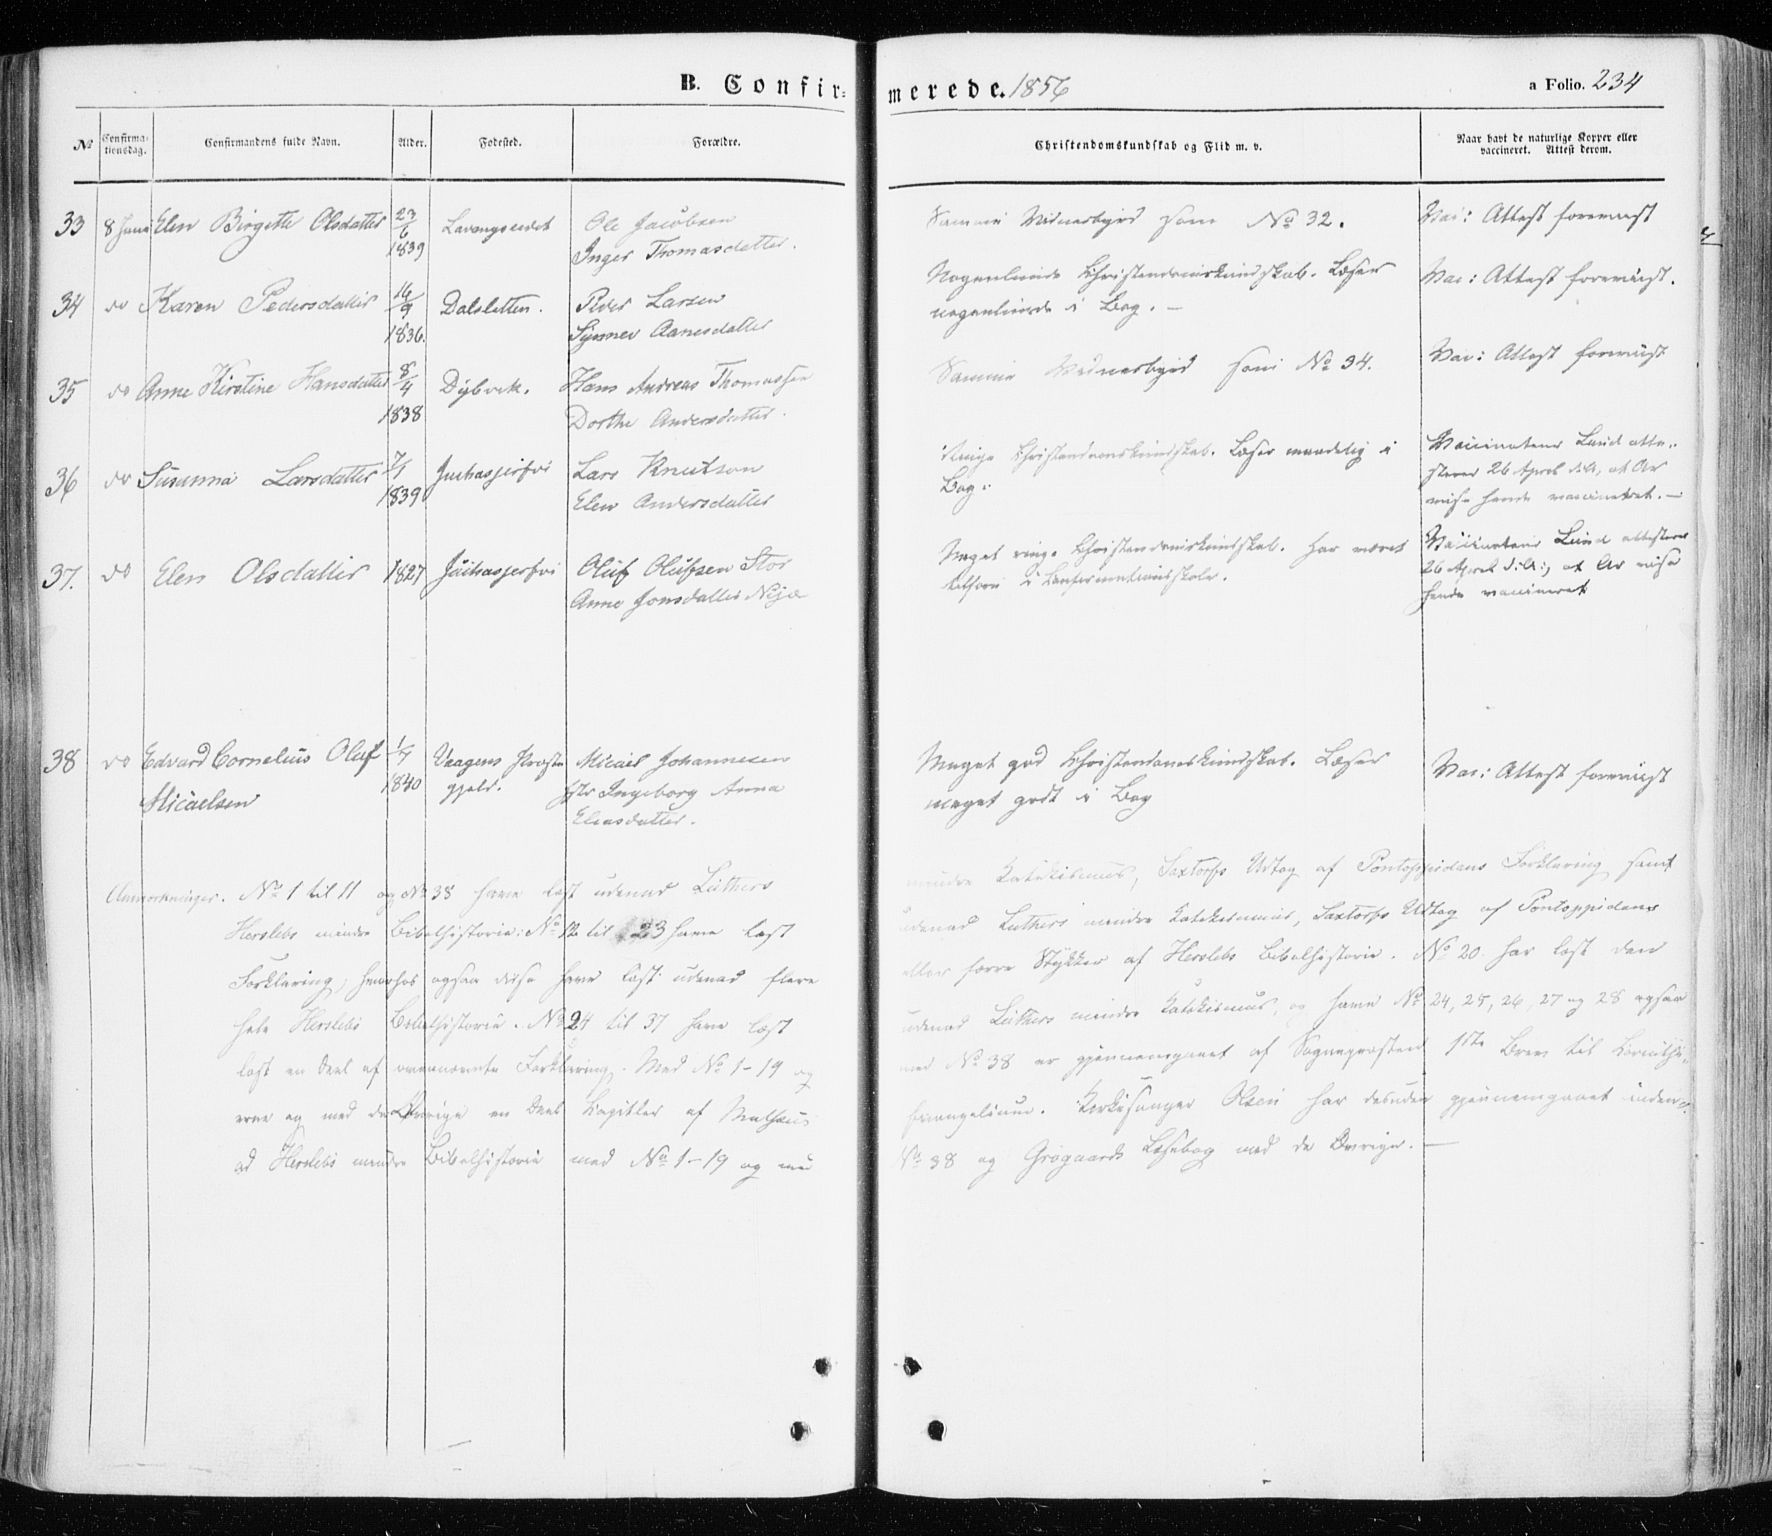 B. Confir-
merede. 1856
a Folio. 234
No
Confirma-
tionsdag.
Confirmandens fulde Navn.
Alder.
Fødested.
Forældre.
Christendomskundskab og Flid m. v.
Naar havt de naturlige Kopper eller
vaccineret. Attest derom.
33 8 Juni Elen Birgitte Olsdatter 23/6 1839 Lavangseidet
Ole Jacobsen
Inger Thomasdatter.
Samme Vidnesbyrd som No 32.
Vac: Attest foreviist
34 do Karen Pedersdatter 16/9 1836. Dalsletten.
Peder Larsen
Synnev Aanesdatter
Nogenlunde Christendomskundskab. Læser
nogenlunde i Bog. -
Vac: Attest foreviist.
35 do Anne Kirstine Hansdatter 8/4 1838 Dybvik.
Hans Andreas Thomassen
Dorthe Andersdatter.
Samme Vidnesbyrd som No 34.
Vac: Attest foreviist
36 do Susanna Larsdatter 7/1 1839
Lars Knutson
Elen Andersdatter
Ringe Christendomskundskab. Læser maadelig i
Bog.
Vaccinateur Lund atte-
sterer 26 April d.A., at Ar
vise hende vaccineret. -
37. do Elen Olsdatter 1827
Oluf Olufsen Stor
Anne Jonsdatter
Meget ringe Christendomskundskab. Har været
tilforn i Confirmationsskole.
Vaccinateur Lund attesterer
26 April d.A., at Ar vise
hende vaccineret
38 do Edvard Cornelius Oluf
Micaelsen
1840
Vaagens Præste
gjeld.
Micael Johannesen
Ingeborg Anna
Eliasdatter.
Meget god Christendomskundskab. Læser
meget godt i Bog
Vac: Attest foreviist
Anmærkninger. No 1 til 11 og No 38 have læst udenad Luthers
mindre Katekismus, Saxtorfs Udtog af Pontoppidans Forklaring samt
Herslebs mindre Bibelhistorie: No 12 til 23 have læst
udenad Luthers mindre Katekismus, Saxtorfs Udtog af Pontoppidans
Forklaring, hvorhos ogsaa disse have læst udenad flere
eller færre Stykker af Herslebs Bibelhistorie. No 20 har læst den
hele Herslebs Bibelhistorie. No 24 til 37 have læst
udenad Luthers mindre Katekismus, og have No 24, 25, 26, 27 og 28 ogsaa
læst en Deel af ovennævnte Forklaring. Med No 1-19 og
med No 38 er gjennemgaaet af Sognepræsten 1ste Brev til Corinthi-
erne og med de Øvrige en Deel Capitler af Mathæus
Evangelium. Kirkesanger Olsen har desuden gjennemgaaet inden-
ad Herslebs mindre Bibelhistorie med No 1-19 og med
No 38 og Grøgaards Læsebog med de Øvrige. -